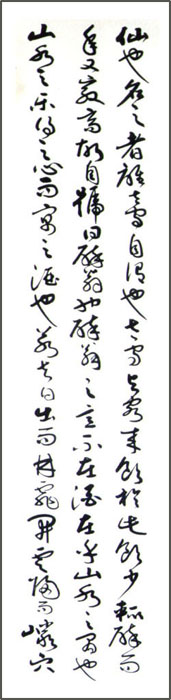 仙也名之者誰太守自謂也太守与客来飲於此飲少輒醉而
年又最高故自號曰醉翁也醉翁之意不在酒在乎山水之間也
山水之樂得之心而寓之酒也若夫日出而林霏開雲歸而巖穴